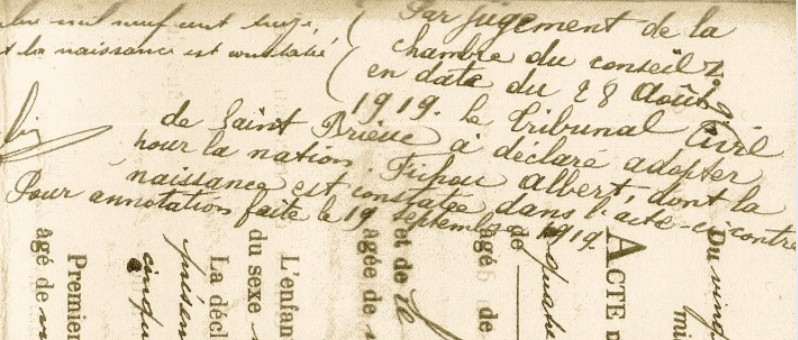 mil neuf cent treize,
t la naissance est constatée
Par jugement de la
chambre du conseil
en date du 28 Août
1919. le Tribunal Civil
de Saint Brieuc a déclaré adopter
pour la nation. Fichou Albert, dont la
naissance est constatée dans l'acte ci-contre
Pour annotation faite le 19 septembre 1919.
Du vingt
mi
ACTE D
de
quatre
agé de
et de
agée de
L'enfan
du sexe
La décl
présen
cinqu
Premier
agé de